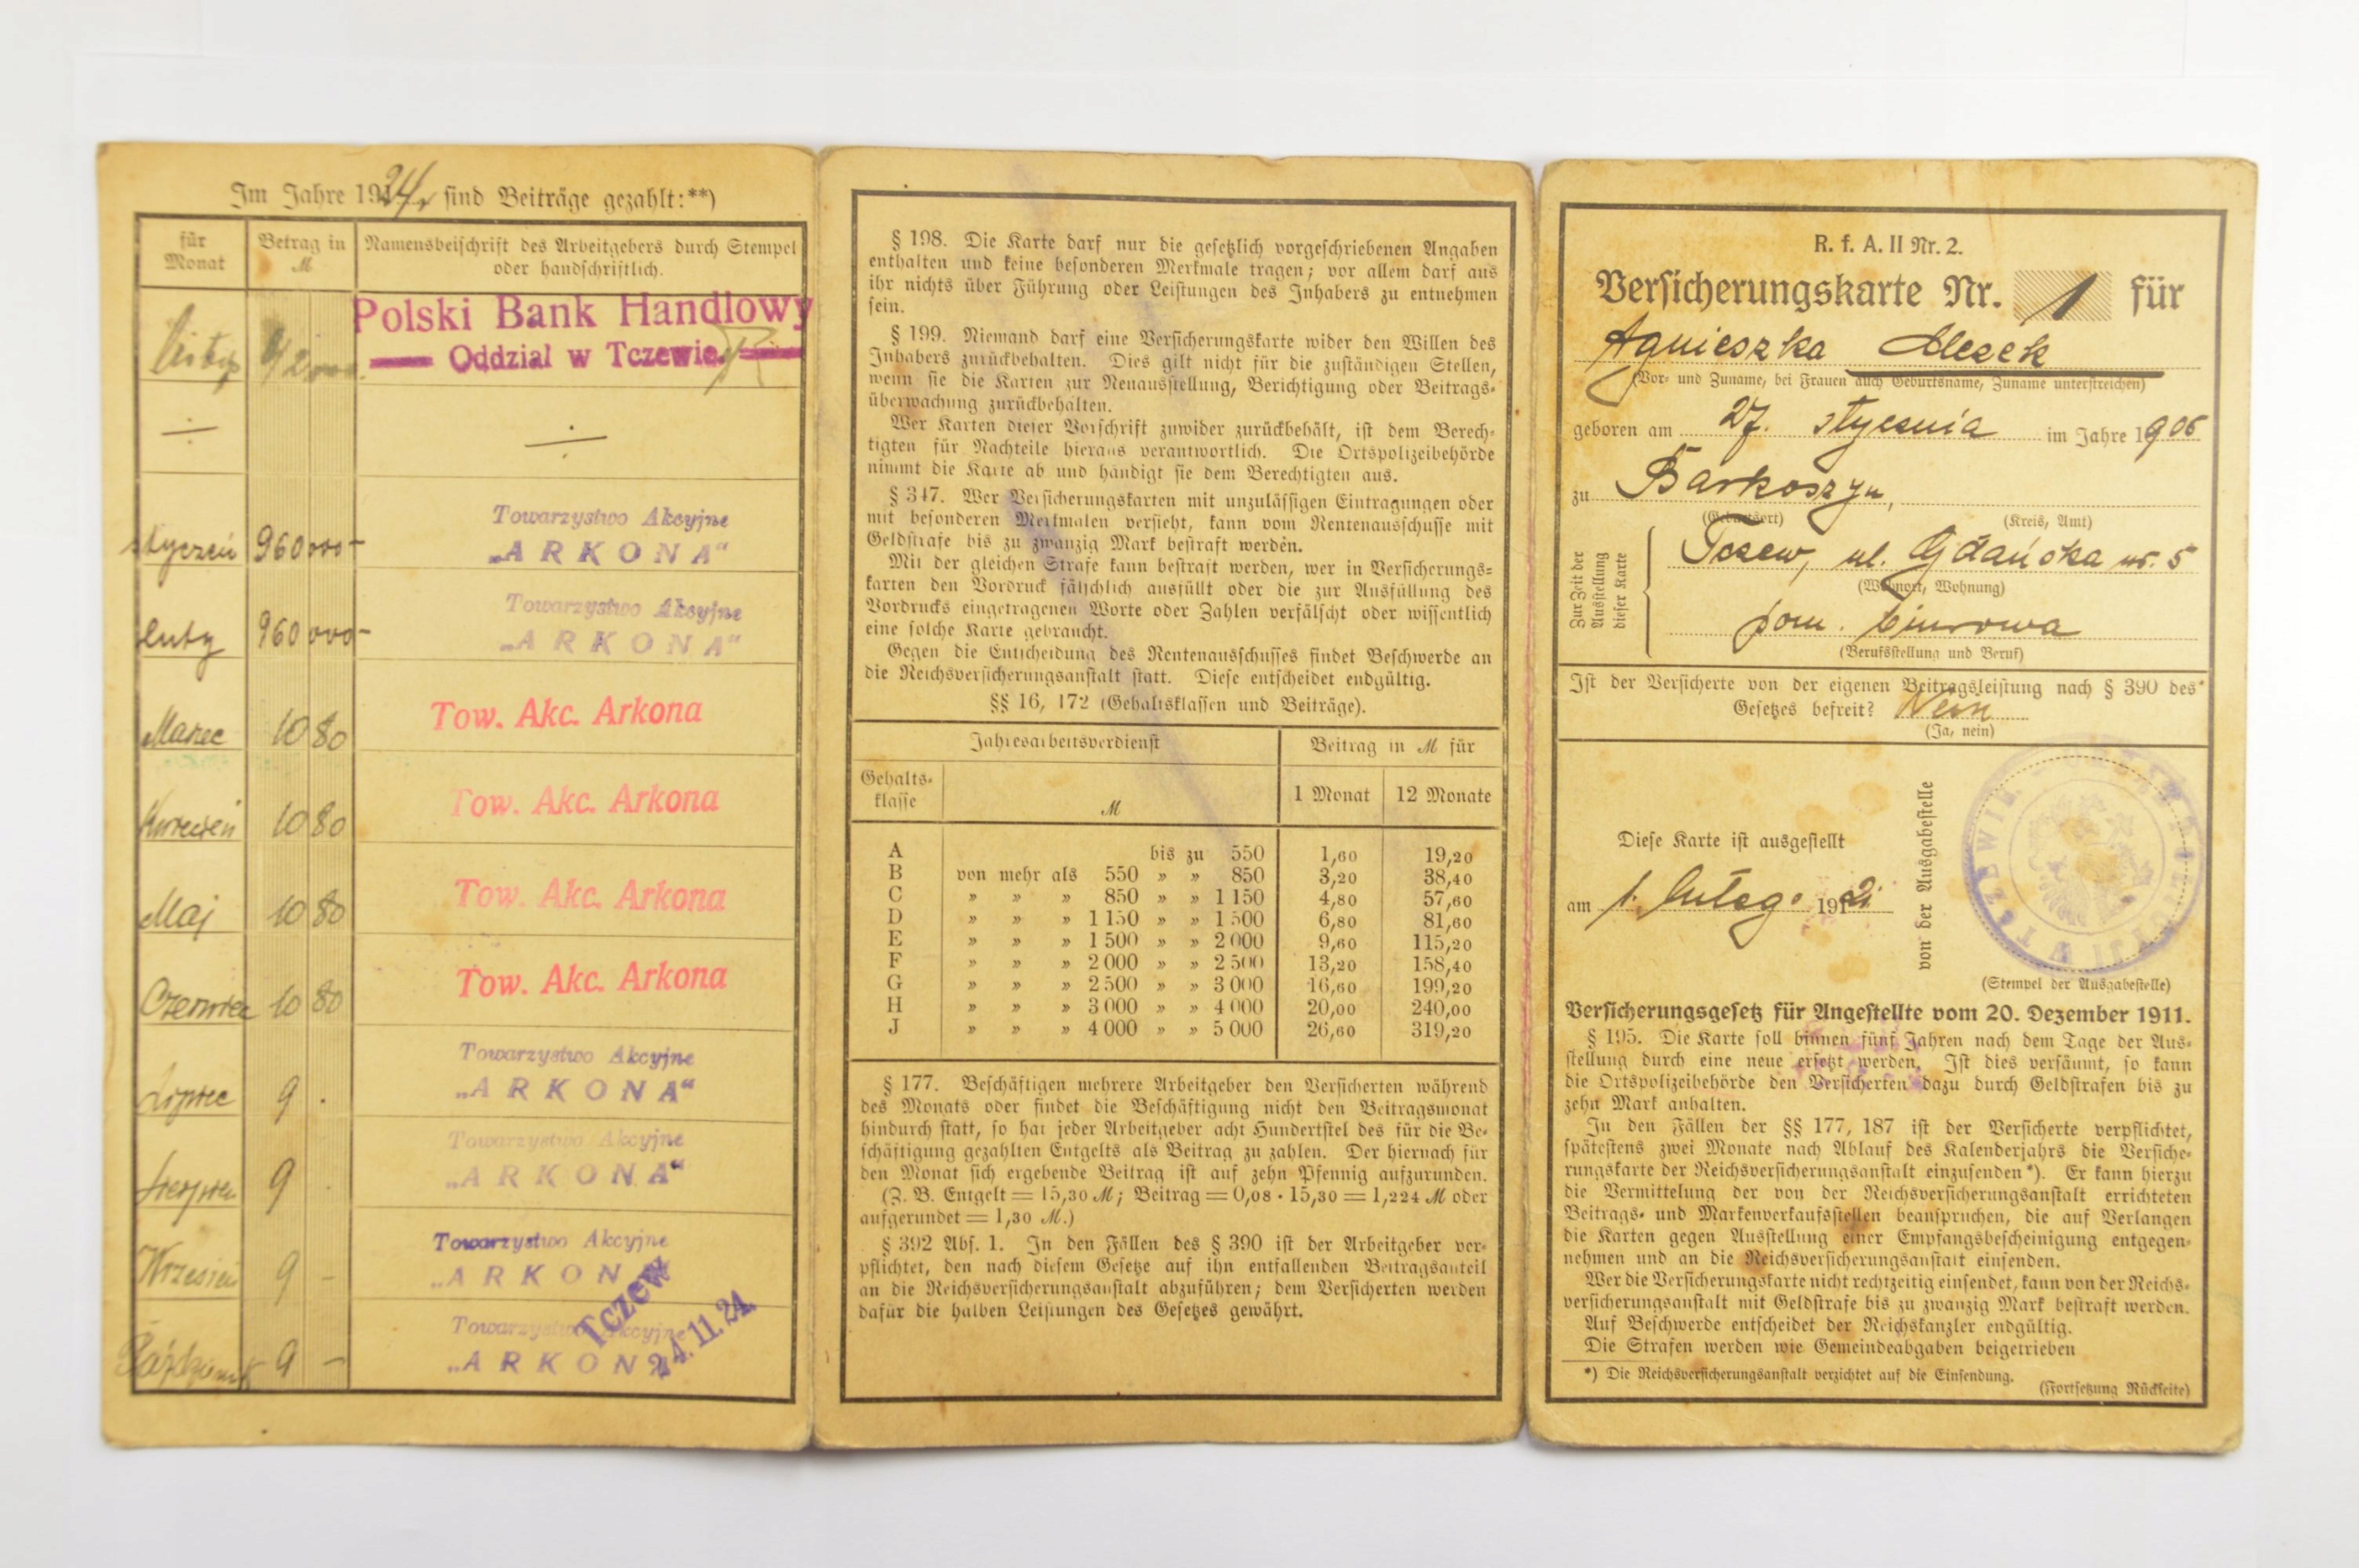 Im Jahre 1924 sind Beiträge gezahlt:**)
für Monat
Betrag in M
Namensbeischrift des Arbeitgebers durch Stempel
oder handschriftlich.
Polski Bank Handlowy
Oddział w Tczewie.
÷ ÷
Towarzystwo Akcyjne
styczeń 960 000- „ARKONA“
Towarzystwo Akcyjne
luty 960 000- „ARKONA“
Marzec 10 80 Tow. Akc. Arkona
Kwiecień 10 80 Tow. Akc. Arkona
Maj 10 80 Tow. Akc. Arkona
Czerwiec 10 80 Tow. Akc. Arkona
Towarzystwo Akcyjne
Lipiec 9 . „ARKONA“
Towarzystwo Akcyjne
Sierpień 9 . „ARKONA“
Towarzystwo Akcyjne
Wrzesień 9 - „ARKONA“
Towarzystwo Akcyjne
Październik 9 - „ARKONA“
Tczew
24.11.24.
§ 198. Die Karte darf nur die gesetzlich vorgeschriebenen Angaben
enthalten und keine besonderen Merkmale tragen; vor allem darf aus
ihr nichts über Führung oder Leistungen des Inhabers zu entnehmen
sein.
§ 199. Niemand darf eine Versicherungskarte wider den Willen des
Inhabers zurückbehalten. Dies gilt nicht für die zuständigen Stellen,
wenn sie die Karten zur Neuausstellung, Berichtigung oder Beitrags-
überwachung zurückbehalten.
Wer Karten dieser Vorschrift zuwider zurückbehält, ist dem Berech-
tigten für Nachteile hieraus verantwortlich. Die Ortspolizeibehörde
nimmt die Karte ab und händigt sie dem Berechtigten aus.
§ 347. Wer Versicherungskarten mit unzulässigen Eintragungen oder
mit besonderen Merkmalen versieht, kann vom Rentenausschusse mit
Geldstrafe bis zu zwanzig Mark bestraft werden.
Mit der gleichen Strafe kann bestraft werden, wer in Versicherungs-
karten den Vordruck fälschlich ausfüllt oder die zur Ausfüllung des
Vordrucks eingetragenen Worte oder Zahlen verfälscht oder wissentlich
eine solche Karte gebraucht.
Gegen die Entscheidung des Rentenausschusses findet Beschwerde an
die Reichsversicherungsanstalt statt. Diese entscheidet endgültig.
§§ 16, 172 (Gehaltsklassen und Beiträge).
Jahresarbeitsverdienst Beitrag in M für
Gehalts-
klasse M 1 Monat 12 Monate
A bis zu 550 1,60 19,20
B von mehr als 550 » » 850 3,20 38,40
C » » » 850 » » 1 150 4,80 57,60
D » » » 1 150 » » 1 500 6,80 81,60
E » » » 1 500 » » 2 000 9,60 115,20
F » » » 2 000 » » 2 500 13,20 158,40
G » » » 2 500 » » 3 000 16,60 199,20
H » » » 3 000 » » 4 000 20,00 240,00
J » » » 4 000 » » 5 000 26,60 319,20
§ 177. Beschäftigen mehrere Arbeitgeber den Versicherten während
des Monats oder findet die Beschäftigung nicht den Beitragsmonat
hindurch statt, so hat jeder Arbeitgeber acht Hundertstel des für die Be-
schäftigung gezahlten Entgelts als Beitrag zu zahlen. Der hiernach für
den Monat sich ergebende Beitrag ist auf zehn Pfennig aufzurunden.
(Z. B. Entgelt = 15,30 M; Beitrag = 0,08 · 15,30 = 1,224 M oder
aufgerundet = 1,30 M.)
§ 392 Abs. 1. In den Fällen des § 390 ist der Arbeitgeber ver-
pflichtet, den nach diesem Gesetze auf ihn entfallenden Beitragsanteil
an die Reichsversicherungsanstalt abzuführen; dem Versicherten werden
dafür die halben Leistungen des Gesetzes gewährt.
R. f. A. II Nr. 2.
Versicherungskarte Nr. 1 für
Agnieszka
(Vor- und Zuname, bei Frauen auch Geburtsname, Zuname unterstreichen)
geboren am 27. stycznia im Jahre 1906
zu Barkoszyn,
(Geburtsort) (Kreis, Amt)
Zur Zeit der
Ausstellung
dieser Karte
Tczew, ul. Gdańska nr. 5
(Wohnort, Wohnung)
pom. biurowa
(Berufsstellung und Beruf)
Ist der Versicherte von der eigenen Beitragsleistung nach § 390 des
Gesetzes befreit? Nein
(Ja, nein)
Diese Karte ist ausgestellt
am 1. lutego 192
von der Ausgabestelle
(Stempel der Ausgabestelle)
Versicherungsgesetz für Angestellte vom 20. Dezember 1911.
§ 195. Die Karte soll binnen fünf Jahren nach dem Tage der Aus-
stellung durch eine neue ersetzt werden. Ist dies versäumt, so kann
die Ortspolizeibehörde den Versicherten dazu durch Geldstrafen bis zu
zehn Mark anhalten.
In den Fällen der §§ 177, 187 ist der Versicherte verpflichtet,
spätestens zwei Monate nach Ablauf des Kalenderjahrs die Versiche-
rungskarte der Reichsversicherungsanstalt einzusenden*). Er kann hierzu
die Vermittelung der von der Reichsversicherungsanstalt errichteten
Beitrags- und Markenverkaufsstellen beanspruchen, die auf Verlangen
die Karten gegen Ausstellung einer Empfangsbescheinigung entgegen-
nehmen und an die Reichsversicherungsanstalt einsenden.
Wer die Versicherungskarte nicht rechtzeitig einsendet, kann von der Reichs-
versicherungsanstalt mit Geldstrafe bis zu zwanzig Mark bestraft werden.
Auf Beschwerde entscheidet der Reichskanzler endgültig.
Die Strafen werden wie Gemeindeabgaben beigetrieben
*) Die Reichsversicherungsanstalt verzichtet auf die Einsendung.
(Fortsetzung Rückseite)